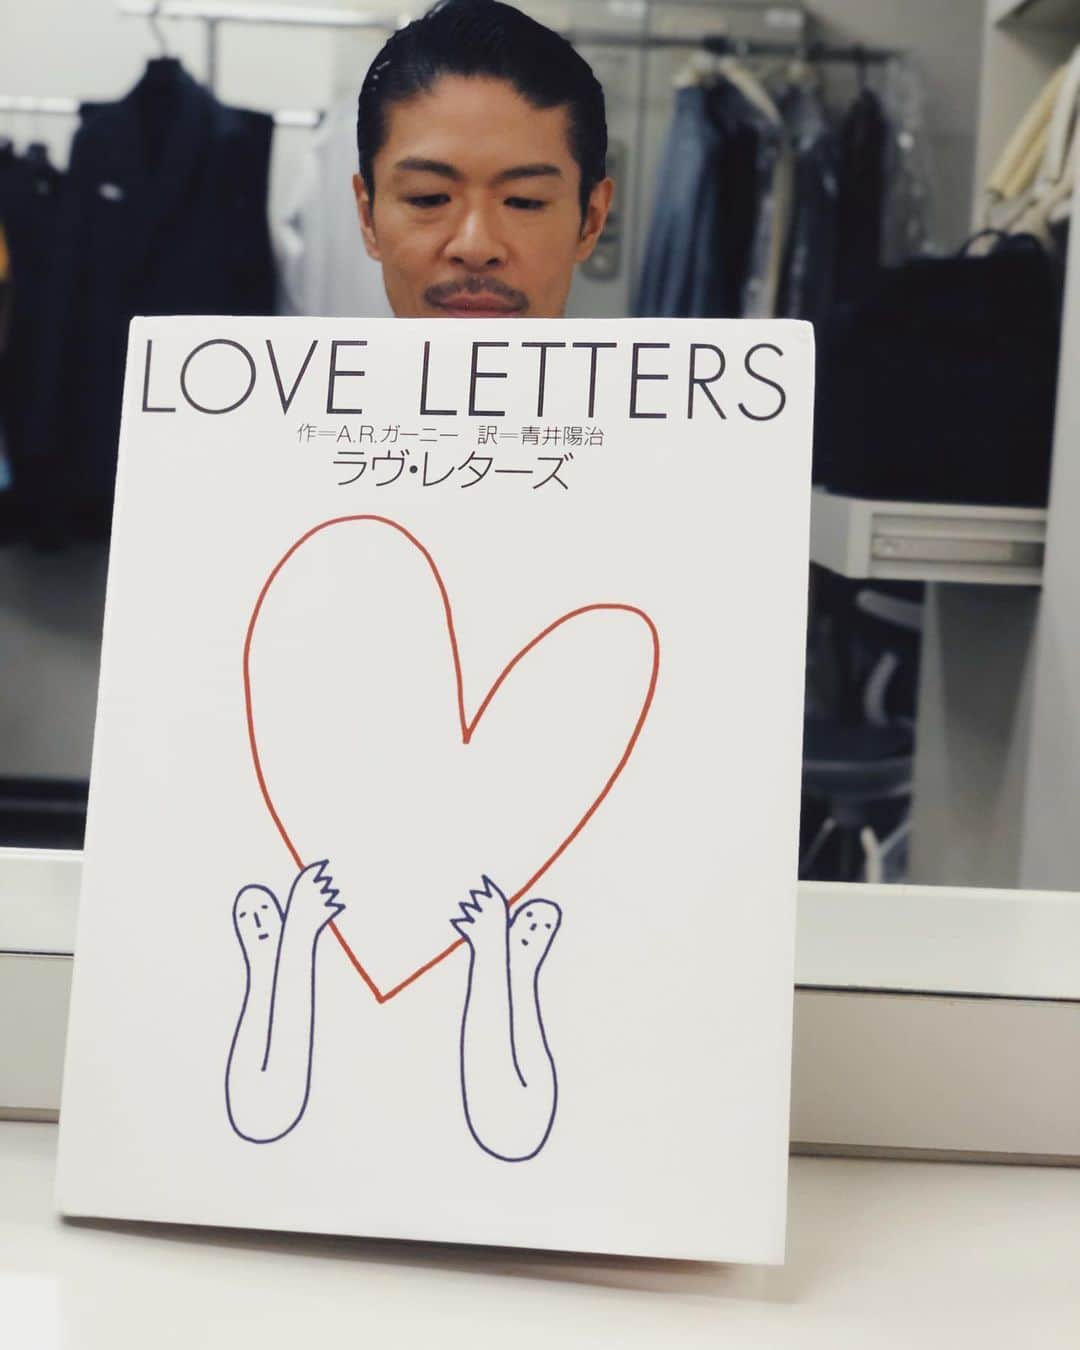 LOVE LETTERS
作=A.R.ガーニー 訳=青井陽治
ラヴ・レターズ